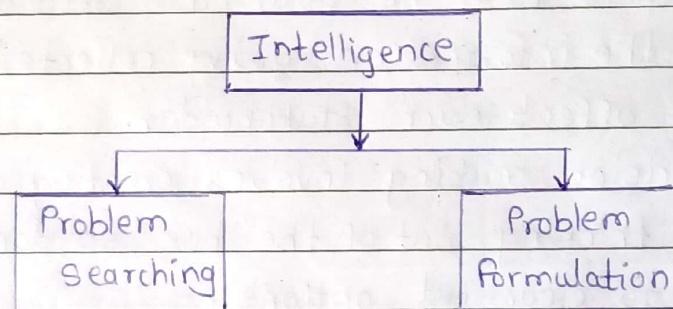 Intelligence
Problem
Searching
Problem
formulation